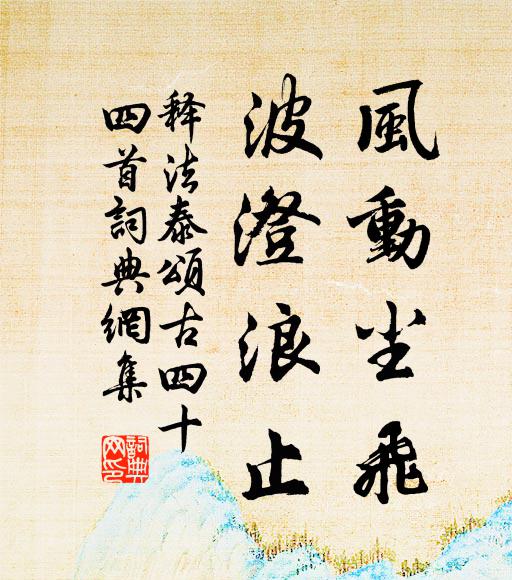 風動尘飛
波澄浪止
释法泰頌古四十
四首詞典網集
詞典网印